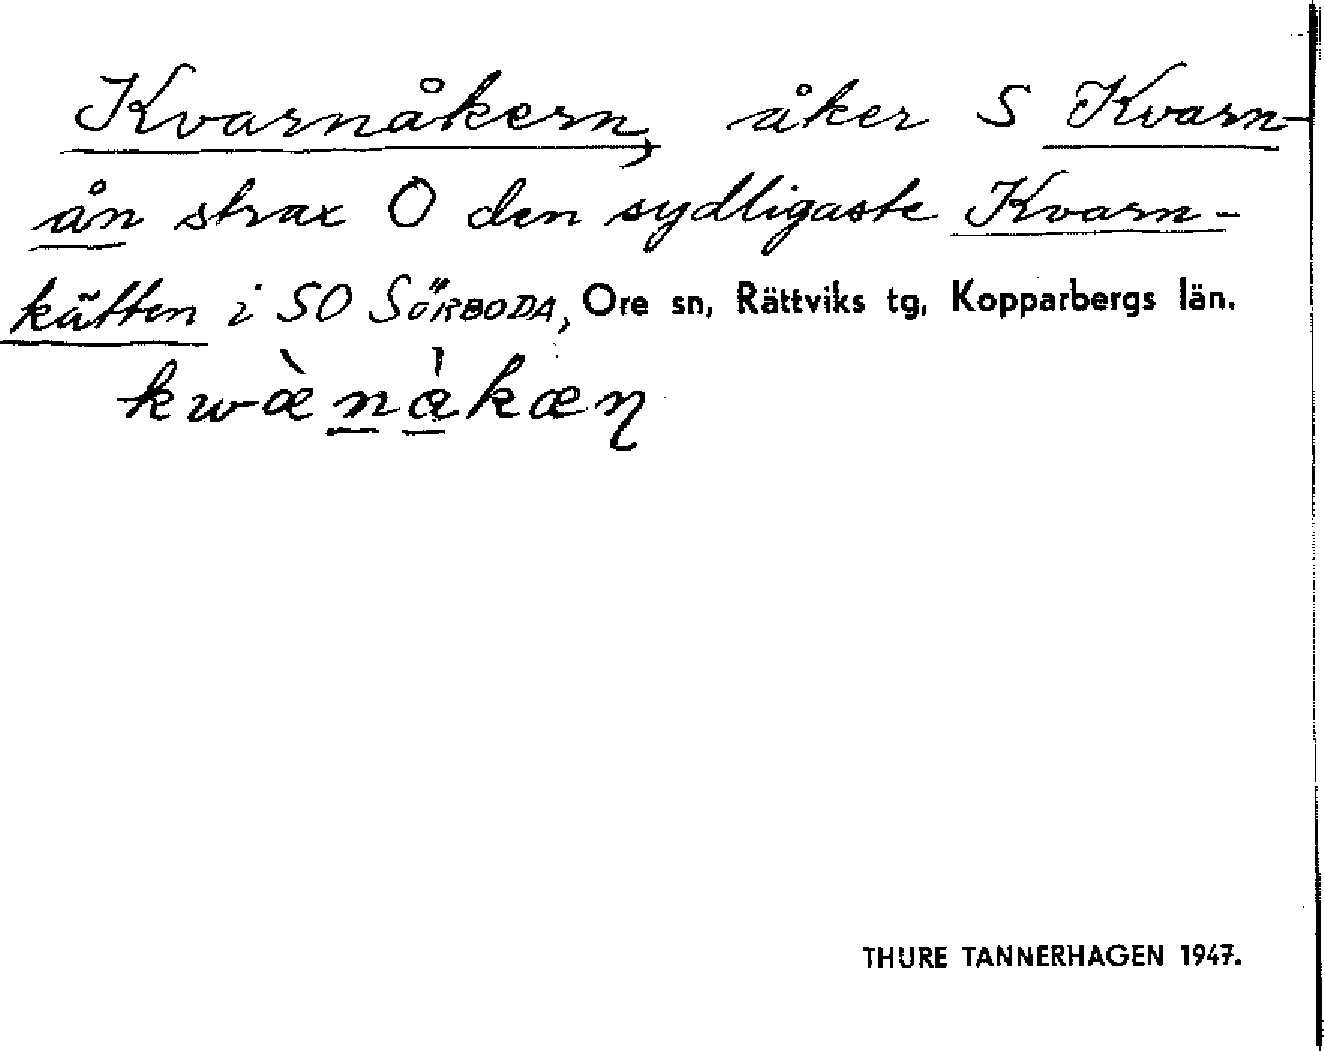 Kvarnåkern, åker S Kvarn-
ån strax O den sydligaste Kvarn-
kätten i SO SÖRBODA, Ore sn, Rättviks tg, Kopparbergs län.
kwæ̀nàkæɳ
THURE TANNERHAGEN 1947.